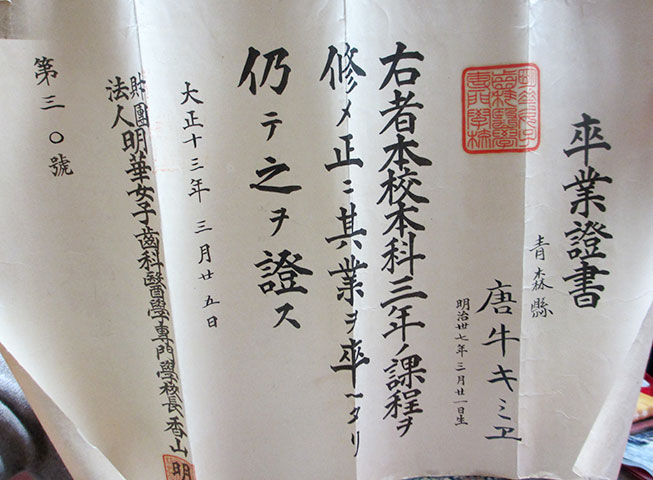 卒業證書
青森縣
唐牛キミヱ
明治卅七年三月廿一日生
右者本校本科三年ノ課程ヲ
修メ正ニ其業ヲ卒ヘタリ
仍テ之ヲ證ス
大正十三年三月廿五日
財團法人明華女子齒科醫學專門學校長香山明
第三〇號